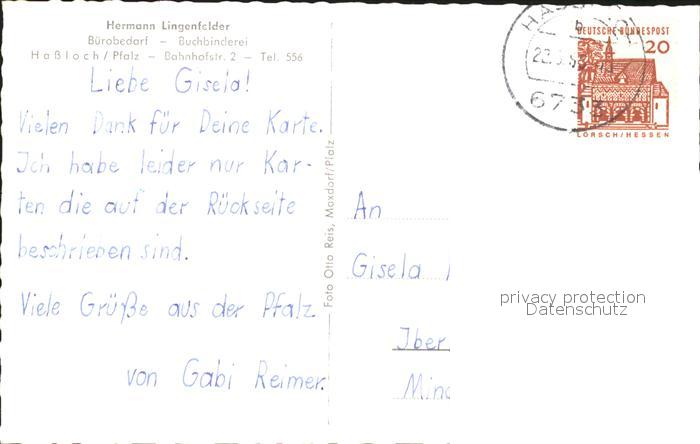 Hermann Lingenfelder
Bürobedarf – Buchbinderei
Haßloch/Pfalz – Bahnhofstr. 2 – Tel. 556
Liebe Gisela!
Vielen Dank für Deine Karte.
Ich habe leider nur Kar-
ten die auf der Rückseite
beschrieben sind.
Viele Grüße aus der Pfalz
von Gabi Reimer.
Foto Otto Reis, Maxdorf/Pfalz
6733
DEUTSCHE BUNDESPOST
20
LORSCH/HESSEN
An
Gisela
privacy protection
Datenschutz
Iber
Mind